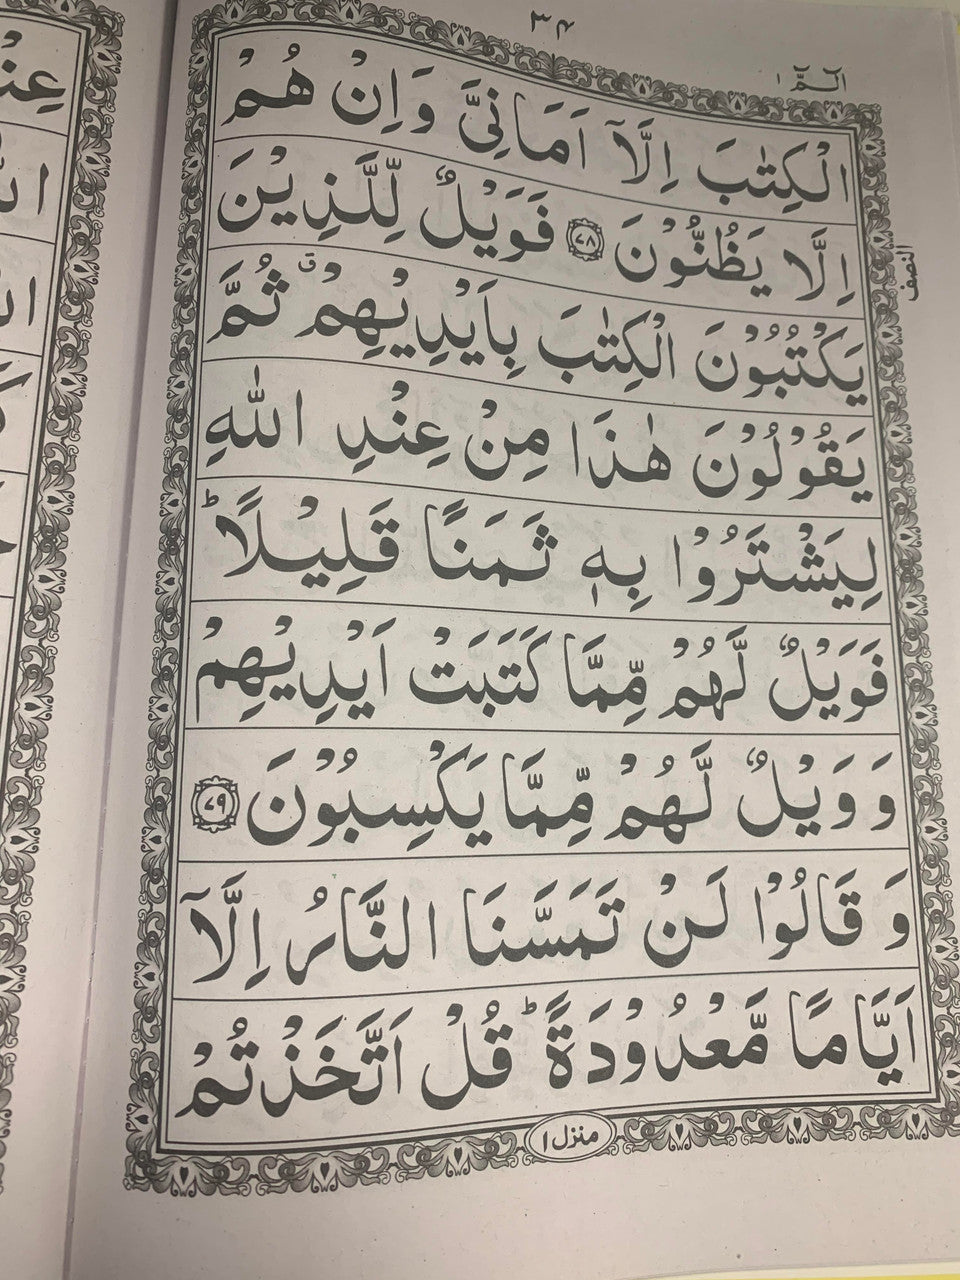 ۳۴
الٓمّٓ ۱
الْكِتٰبَ اِلَّاۤ اَمَانِیَّ وَاِنْ هُمْ
اِلَّا یَظُنُّوْنَ ﴿۷۸﴾ فَوَیْلٌ لِّلَّذِیْنَ
النصف
یَكْتُبُوْنَ الْكِتٰبَ بِاَیْدِیْهِمْ ۗ ثُمَّ
یَقُوْلُوْنَ هٰذَا مِنْ عِنْدِ اللّٰهِ
لِیَشْتَرُوْا بِهٖ ثَمَنًا قَلِیْلًا ؕ
فَوَیْلٌ لَّهُمْ مِّمَّا كَتَبَتْ اَیْدِیْهِمْ
وَ وَیْلٌ لَّهُمْ مِّمَّا یَكْسِبُوْنَ ﴿۷۹﴾
وَ قَالُوْا لَنْ تَمَسَّنَا النَّارُ اِلَّاۤ
اَیَّامًا مَّعْدُوْدَةً ؕ قُلْ اَتَّخَذْتُمْ
منزل ۱